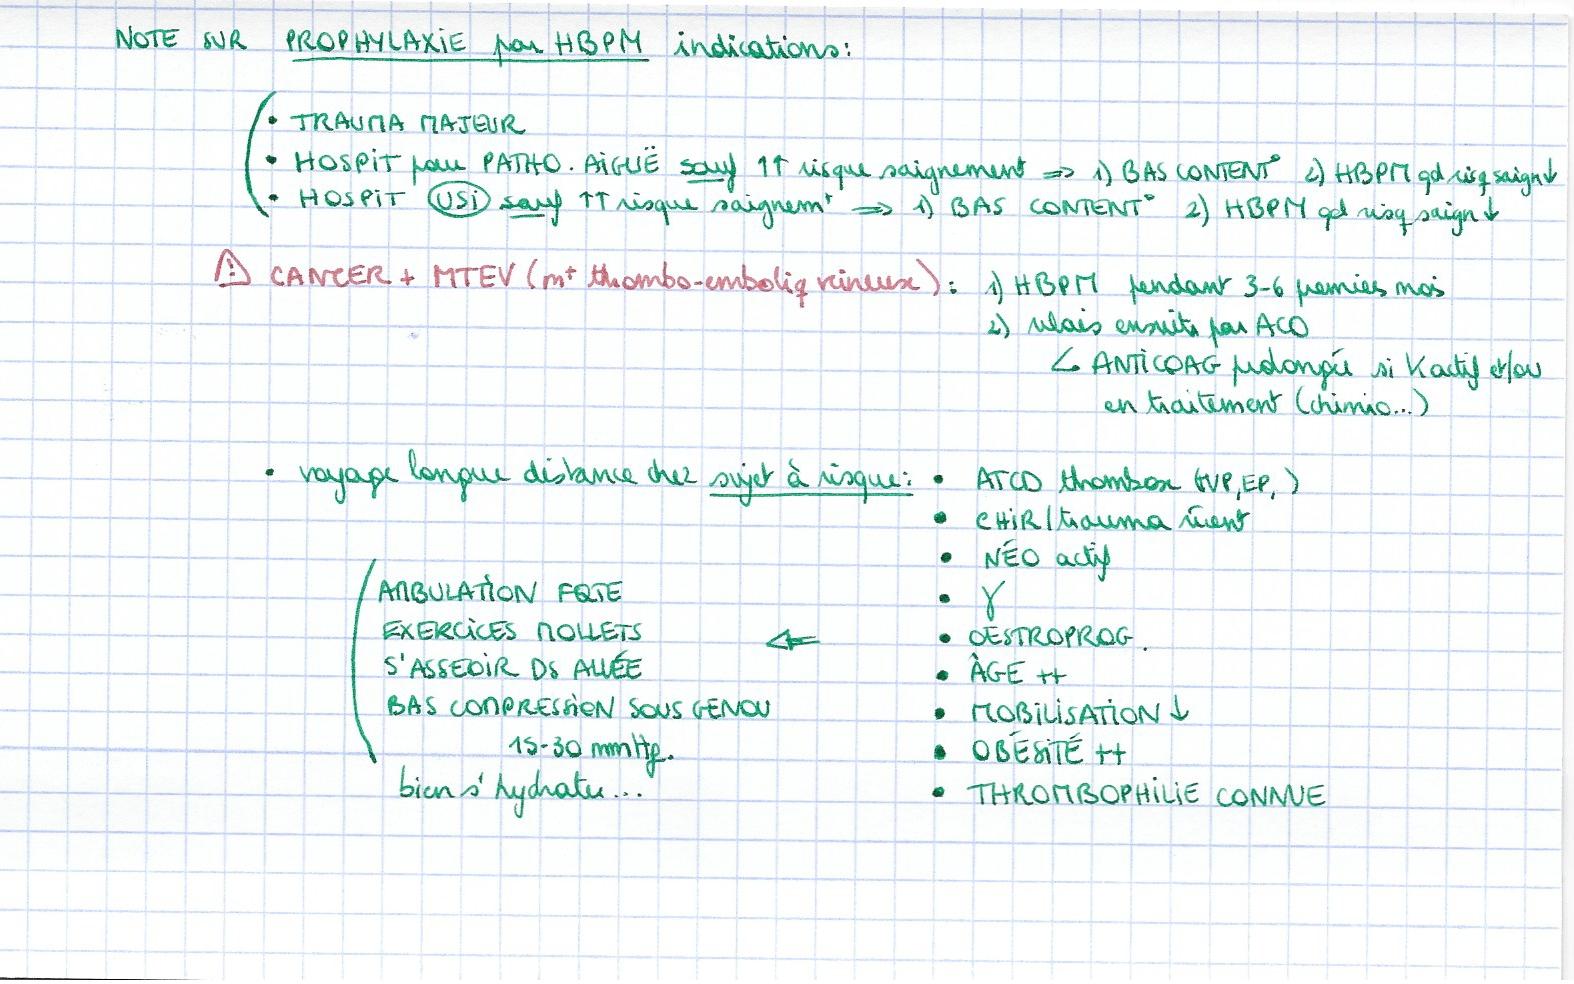 NOTE SUR PROPHYLAXIE par HBPM indications:
• TRAUMA MAJEUR
• HOSPiT pour PATHO. AiGUË sauf ↑↑ risque saignement => 1) BAS CONTENT° 2) HBPM qd risq saign↓
• HOSPiT USi sauf ↑↑ risque saignemt => 1) BAS CONTENT° 2) HBPM qd risq saign↓
⚠ CANCER + MTEV (mt thombo-emboliq veineuse): 1) HBPM pendant 3-6 premiers mois
2) relais ensuite par ACO
ANTiCOAG prolongée si K actif et/ou
en traitement (chimio...)
• voyage longue distance chez sujet à risque:
• ATCD thrombose (TVP, EP, )
• CHiR/trauma récent
• NÉO actif
• γ
• OESTROPROG.
• ÂGE ++
• MOBiLiSATiON ↓
• OBÉSiTÉ ++
• THROMBOPHiLiE CONNUE
<=
AMBULATiON FQTE
EXERCiCES MOLLETS
S'ASSEOiR DS ALLÉE
BAS COMPRESSiON SOUS GENOU
15-30 mmHg.
bien s'hydrater...